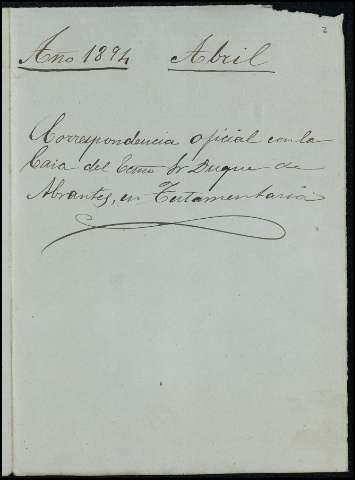 2
Año 1894 Abril
Correspondencia oficial con la
Casa del Ecmo Sr Duque de
Abrantes, en Testamentaria